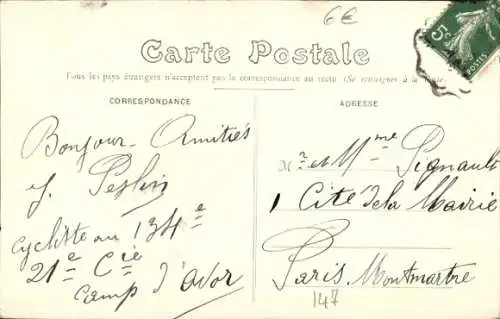 6€
5c
POSTES
Carte Postale
Tous les pays étrangers n'acceptent pas la correspondance au recto (Se renseigner à la Poste)
CORRESPONDANCE
Bonjour Amitiés
J.
cycliste au 134e
21e Cie
Camp d'Avor
ADRESSE
Mr et Mme Pignault
1 Cité de la Mairie
Paris Montmartre
147